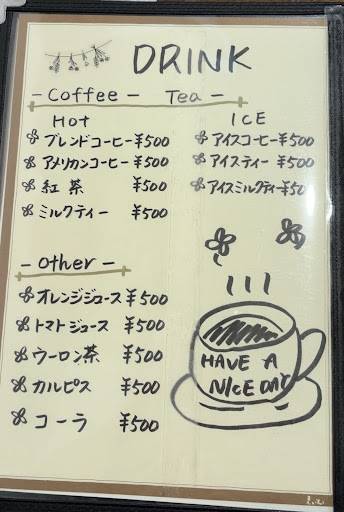 DRINK
- Coffee - Tea -
Hot
ブレンドコーヒー ¥500
アメリカンコーヒー ¥500
紅茶 ¥500
ミルクティー ¥500
ICE
アイスコーヒー ¥500
アイスティー ¥500
アイスミルクティー ¥500
- Other -
オレンジジュース ¥500
トマトジュース ¥500
ウーロン茶 ¥500
カルピス ¥500
コーラ ¥500
HAVE A
NICE DAY